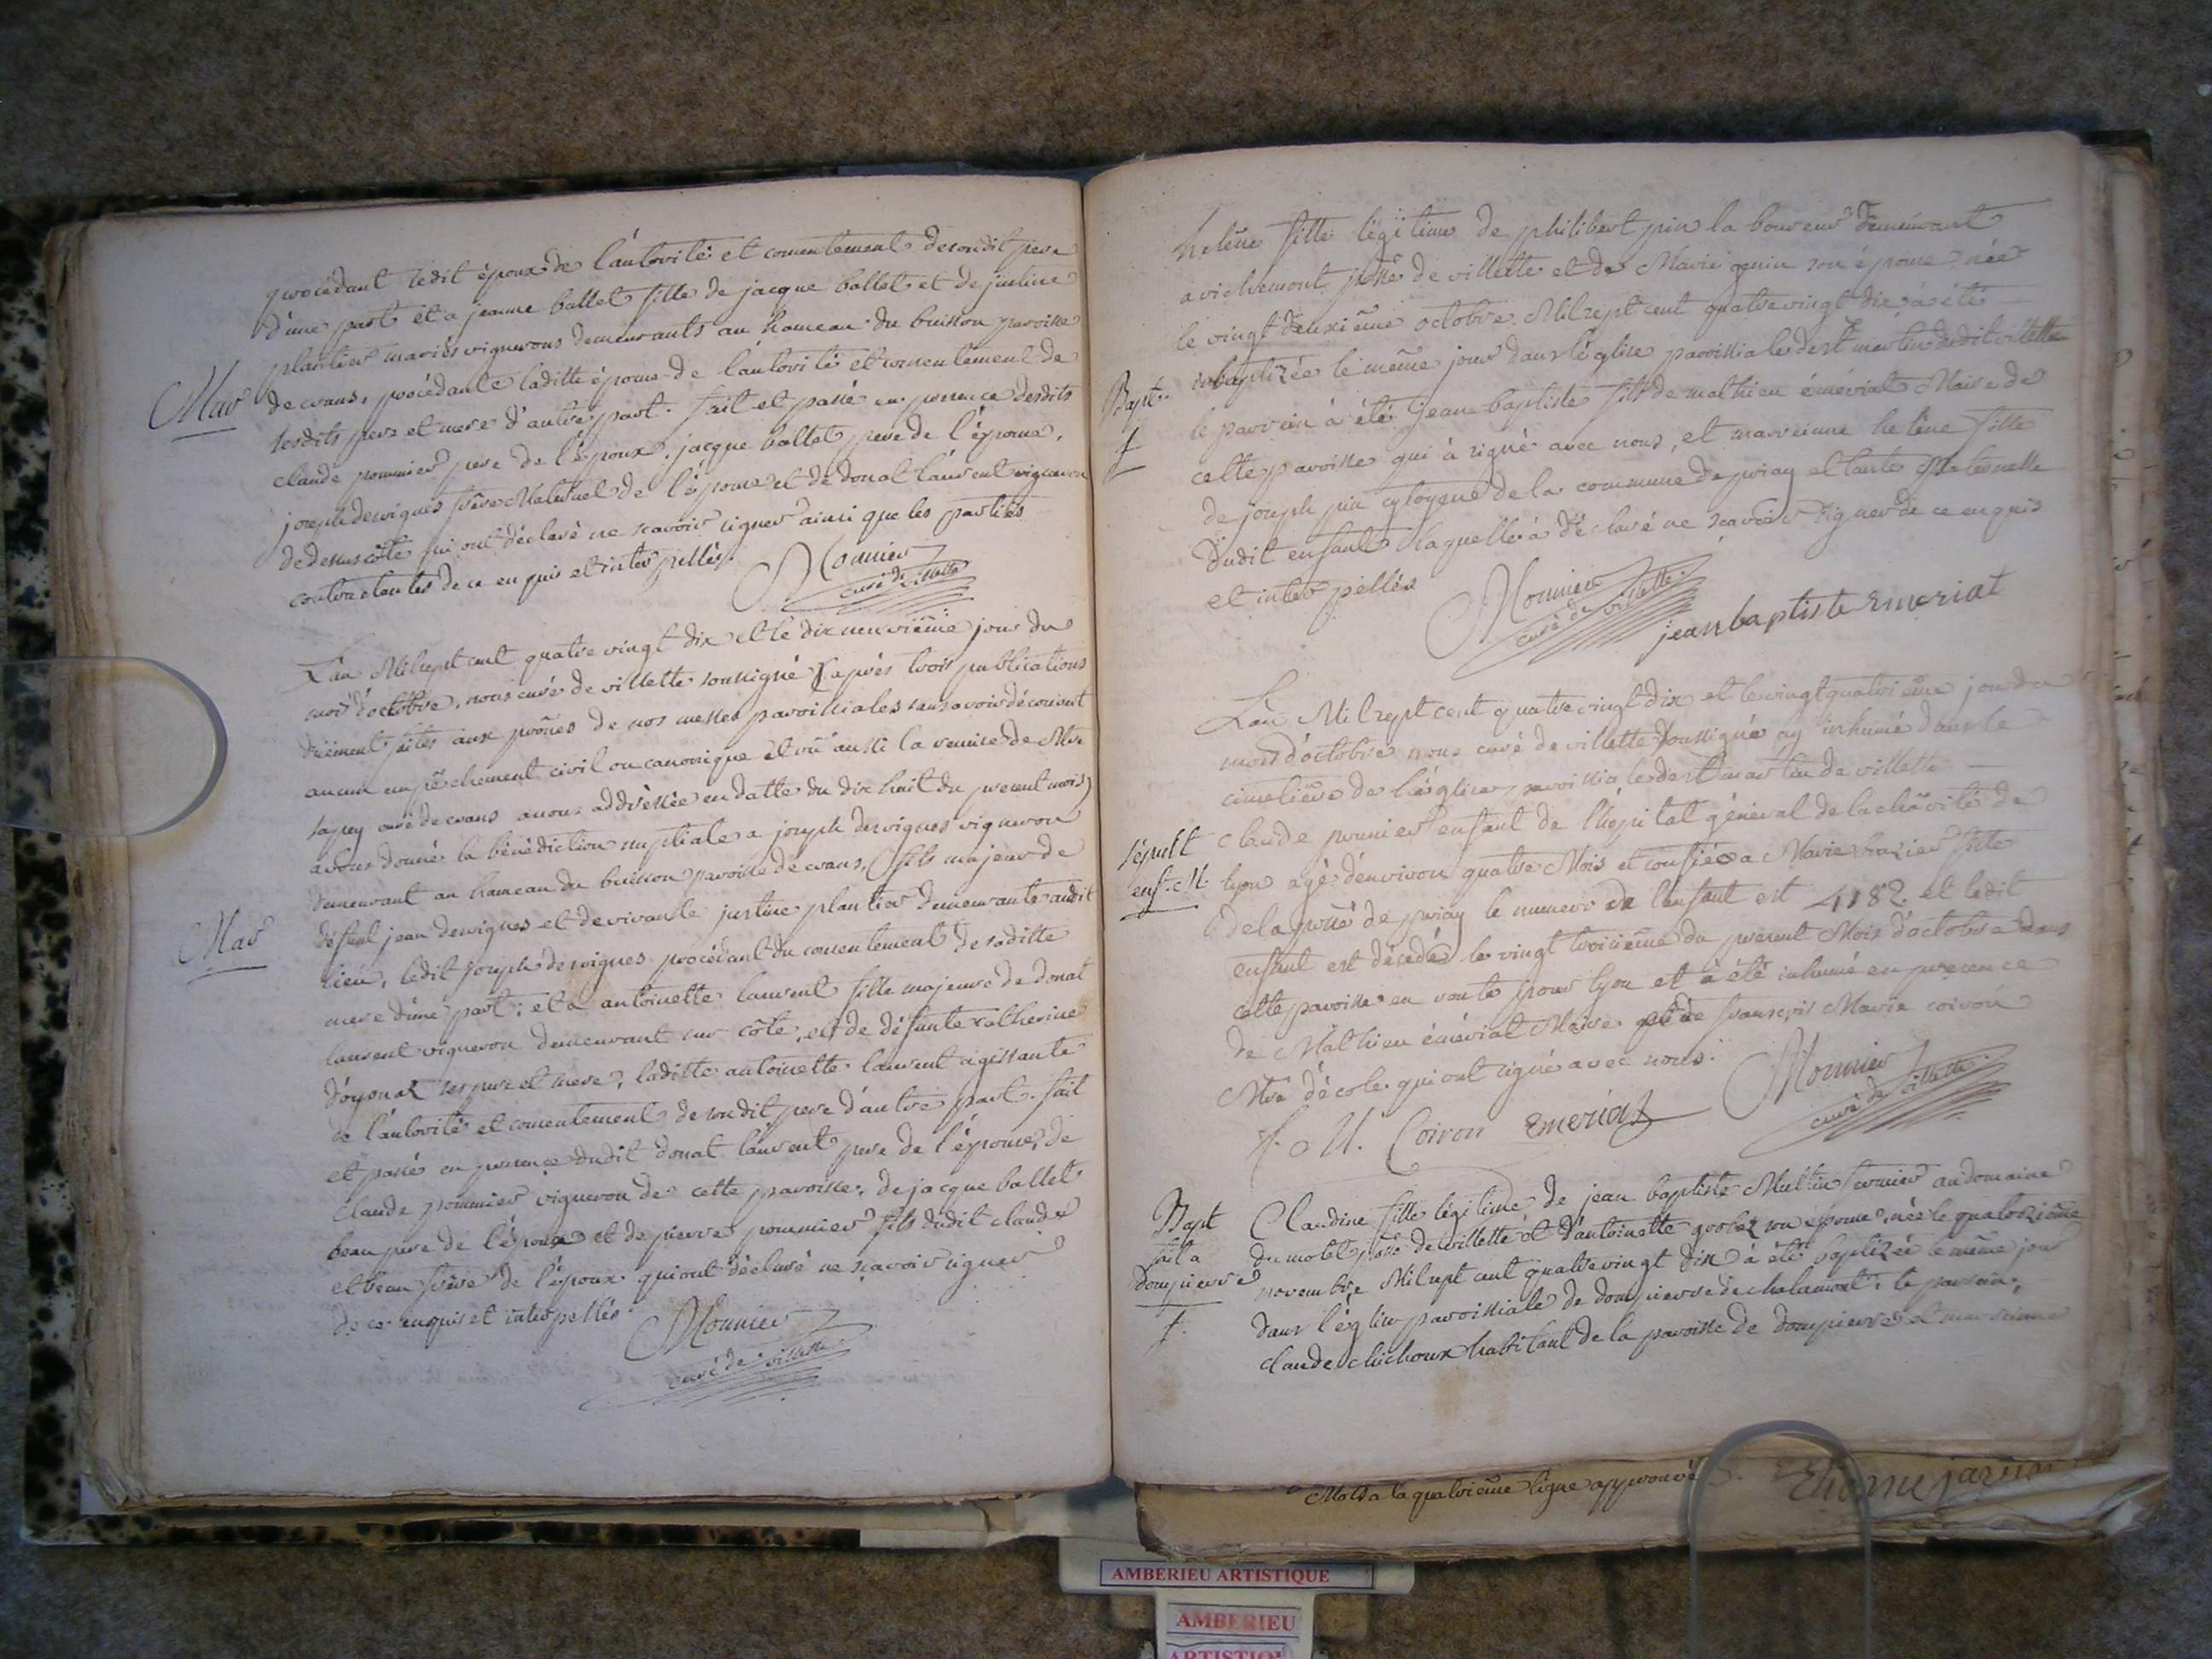 procédant ledit époux de l'autorité et consentement de son dit pere
d'une part et a jeanne ballet fille de jacque ballet et de justine
plantier mariés vignerons demeurants au hameau du buisson paroisse
Mar
de crans, procédante laditte épouse de l'autorité et consentement de
sesdits pere et mere d'autre part. fait et passé en presence desdits
claude pommier pere de l'époux, jacque ballet pere de l'épouse,
joseph desvignes frere Maternel de l'épouse et de donat laurent vigneron
de dessus côte qui ont déclaré ne scavoir signer ainsi que les parties
contractantes de ce enquis et interpellés.
Monnier
curé de villette
L'an Mil sept cent quatre vingt dix et le dix neuvième jour du
mois d'octobre, nous curé de villette soussigné après trois publications
düement faites aux prônes de nos messes paroissiales sans avoir découvert
aucun empêchement civil ou canonique et vû aussi la remise de Mre
sapey curé de crans a nous addressée en datte du dix huit du present mois)
avons donné la bénédiction nuptiale a joseph desvignes vigneron
demeurant au hameau du buisson paroisse de crans, fils majeur de
Mar
défunt jean desvignes et de vivante justine plantier demeurante audit
lieu, ledit joseph desvignes procédant du consentement de saditte
mere d'une part; et a antoinette laurent fille majeure de donat
laurent vigneron demeurant sur côte, et de défunte catherine
d'oyonax ses pere et mere, laditte antoinette laurent agissante
de l'autorité et consentement de son dit pere d'autre part. fait
et passé en presence dudit donat laurent pere de l'épouse, de
claude pommier vigneron de cette paroisse, de jacque ballet
beau pere de l'époux et de pierre pommier fils dudit claude
et beau frère de l'époux qui ont déclaré ne scavoir signer
de ce enquis et interpellés.
Monnier
curé de villette
helene fille légitime de philibert pin laboureur demeurant
a vichemont psse de villette et de Marie genin son épouse née
le vingt deuxième octobre Mil sept cent quatre vingt dix à été
Bapt.
baptizée le même jour dans l'église paroissiale de st martin dudit villette
le parrein à été jean baptiste fils de mathieu émériat Maire de
f
cette paroisse qui à signé avec nous, et marreinne helène fille
de joseph pin cytoyens de la commune de priay et tante Maternelle
dudit enfant laquelle à déclaré ne scavoir signer de ce enquis
et interpellée
Monnier
curé de villette
jean baptiste Emeriat
L'an Mil sept cent quatre vingt dix et le vingt quatrième jour du
mois d'octobre nous curé de villette soussigné ay inhumé dans le
cimetière de l'église paroissiale de st martin de villette
sépult
claude prunier enfant de l'hôpital géneral de la charité de
enf. M.
lyon agé d'environ quatre Mois et confiée a Marie vinzier fille
de la psse de priay le numero de l'enfant est 4182. et ledit
enfant est décédé le vingt troisième du present Mois d'octobre dans
cette paroisse en route pour lyon et à été inhumé en presence
de Mathieu émériat Maire et de françois Marie coiron
Mre d'école qui ont signé avec nous.
f. M. Coiron
Emeriat
Monnier
curé de villette
Bapt
Claudine fille légitime de jean baptiste Multin fermier au domaine
fait a
du motet psse de villette et d'antoinette son épouse, née le quatorzième
dompierre
novembre Mil sept cent quatre vingt dix à été baptizée le même jour
f.
dans l'église paroissiale de dompierre de chalamont, le parrein,
claude chichoux habitant de la paroisse de dompierre et marreinne
Mots a la quatrième ligne approuvé.
AMBERIEU ARTISTIQUE
AMBERIEU
ARTISTIQ